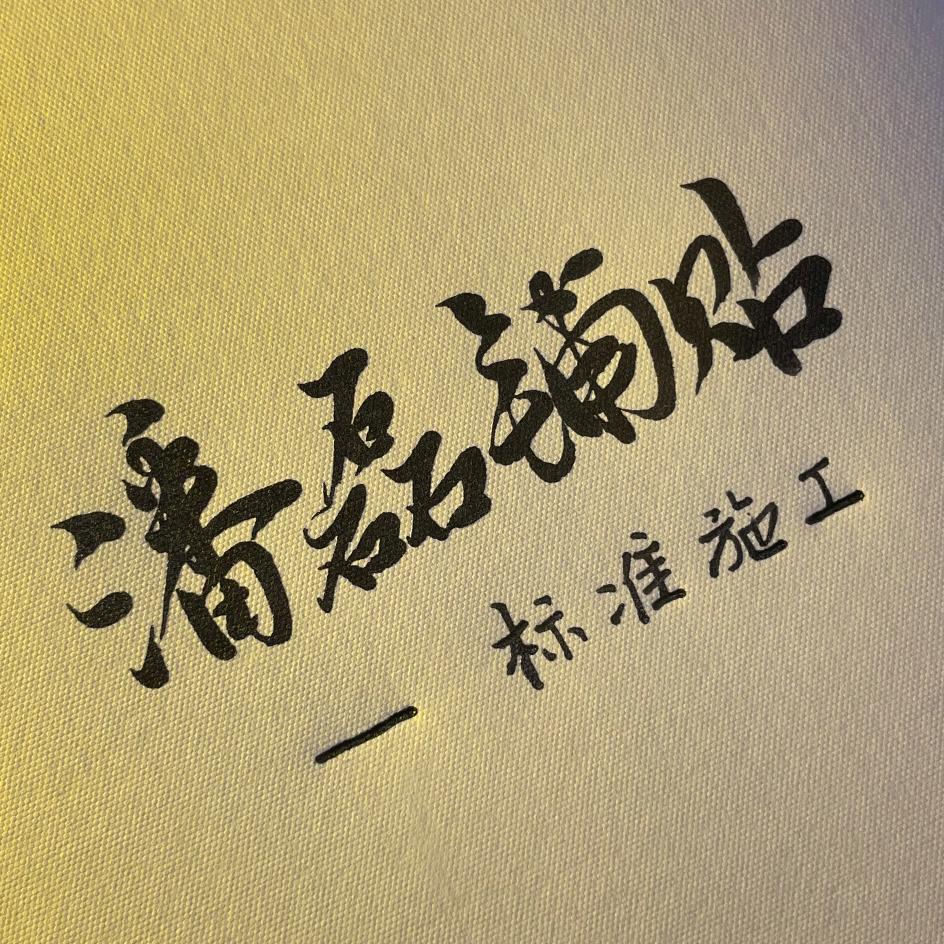 潘磊铺贴
— 标准施工